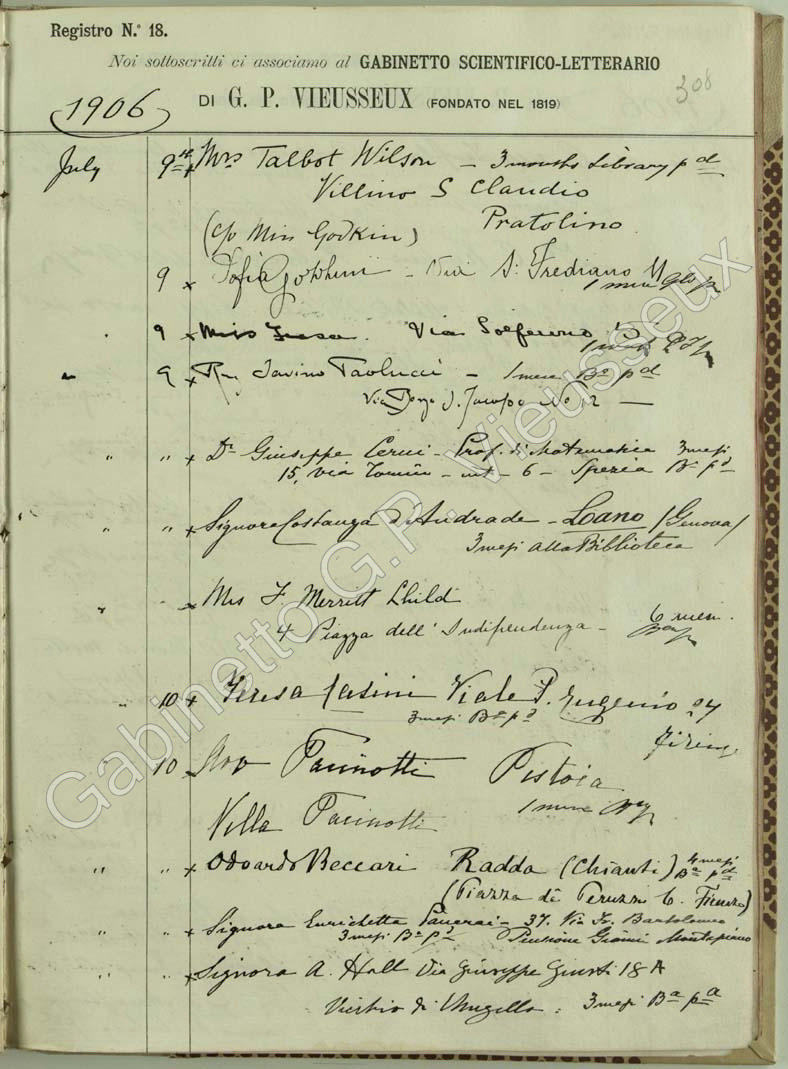 Registro N.° 18.
Noi sottoscritti ci associamo al GABINETTO SCIENTIFICO-LETTERARIO
308
1906
DI G. P. VIEUSSEUX (FONDATO NEL 1819)
July 9th x Mrs Talbot Wilson – 3 months Library pd
Villino S Claudio
Pratolino
(c/o Miss Godkin)
9 x Sofia – Via S. Frediano
1 mese
9 x Miss Via Solferino
9 x Tavino Paolucci – 1 mese Ba pd
Via Borgo S. Jacopo No 12 —
" " x Dr Giuseppe Cerui – Prof. di Matematica 3 mesi
15, via Torino – int – 6 – Spezia Ba pd
" " x Signora Costanza d'Andrade – Loano (Genova)
3 mesi alla Biblioteca
" " x Mrs F Merritt Child
4 Piazza dell' Indipendenza – 6 mesi
10 x Teresa Casini Viale P. Eugenio 27
3 mesi Ba pd
Firenze
10 x Avv Pacinotti Pistoia
1 mese
Villa Pacinotti
" " x Odoardo Beccari Radda (Chianti) 4 mesi
Ba pd
(Piazza de Peruzzi 6. Firenze)
" " x Signora Enrichetta Panerai – 37. Via Bartolomeo
3 mesi Ba pd Pensione Gianni Montepiano
" " x Signora A. Hall Via Giuseppe Giusti 18 A
Vicchio di Mugello : 3 mesi Ba pa
Gabinetto G.P. Vieusseux